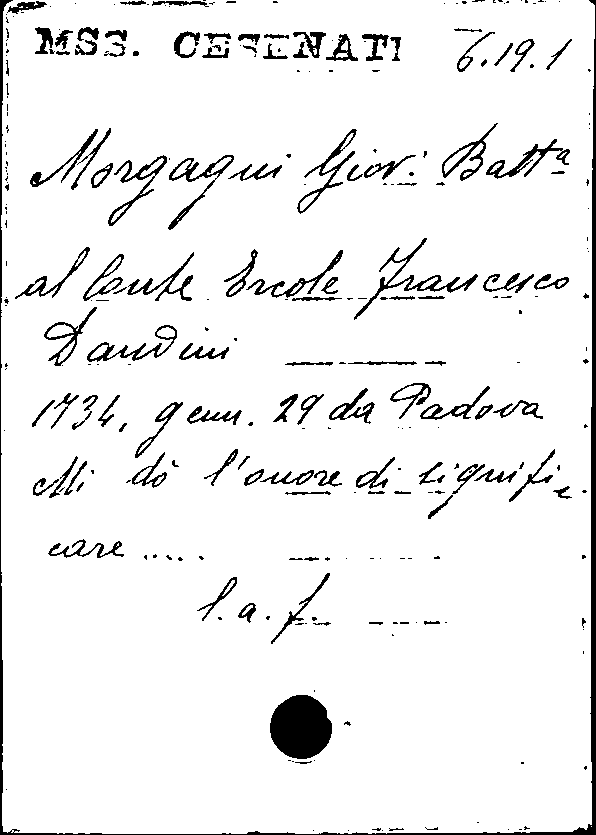 MSS. CESENATI 6.19.1
Morgagni Giov. Batt.ª
al Conte Ercole Francesco
Dandini
1734, genn. 29 da Padova
Mi dò l'onore di signifi-
care .....
l. a. f.